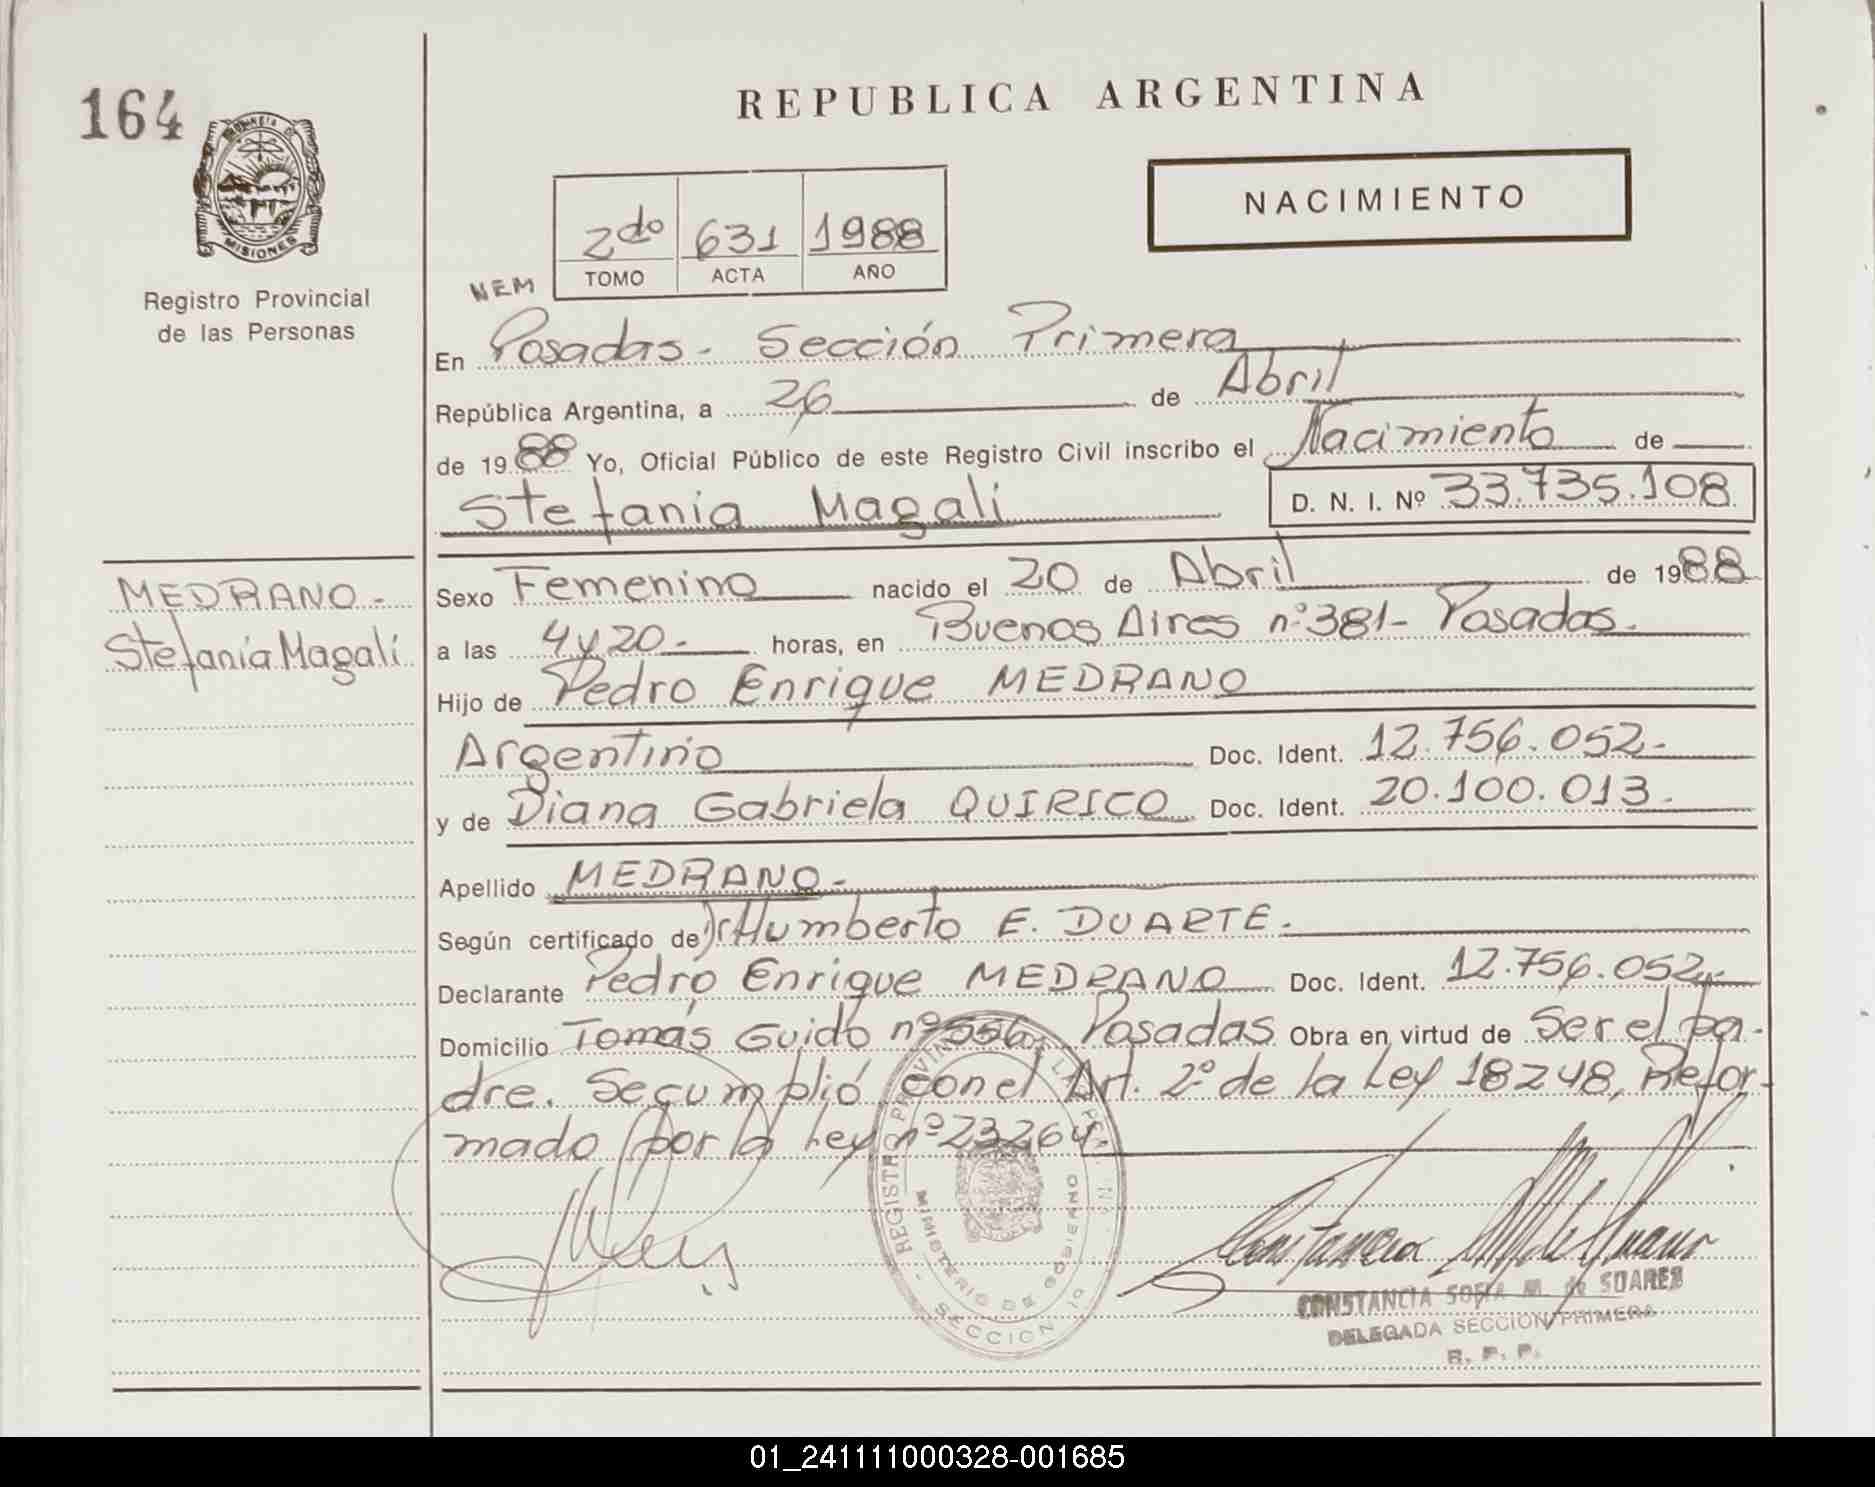 164
PROVINCIA DE
MISIONES
Registro Provincial
de las Personas
REPUBLICA ARGENTINA
NACIMIENTO
2do 631 1988
TOMO ACTA AÑO
NEM
En Posadas - Sección Primera
República Argentina, a 26 de Abril
de 1988 Yo, Oficial Público de este Registro Civil inscribo el Nacimiento de
Stefania Magali D. N. I. Nº 33.735.108
MEDRANO -
Stefanía Magalí
Sexo Femenino nacido el 20 de Abril de 1988
a las 4 y 20 - horas, en Buenos Aires nº 381 - Posadas.
Hijo de Pedro Enrique MEDRANO
Argentino Doc. Ident. 12.756.052 -
y de Diana Gabriela QUIRICO Doc. Ident. 20.100.013 -
Apellido MEDRANO -
Según certificado de Dr Humberto E. DUARTE -
Declarante Pedro Enrique MEDRANO Doc. Ident. 12.756.052 -
Domicilio Tomás Guido nº 556, Posadas Obra en virtud de Ser el pa-
dre. Se cumplió con el Art. 2º de la Ley 18248, Refor-
mado por la Ley nº 23264 -
REGISTRO PROVINCIAL
MINISTERIO DE GOBIERNO
SECCION 1º
CONSTANCIA SOFIA M. de SUARES
DELEGADA SECCION PRIMERA
R. P. P.
01_241111000328-001685